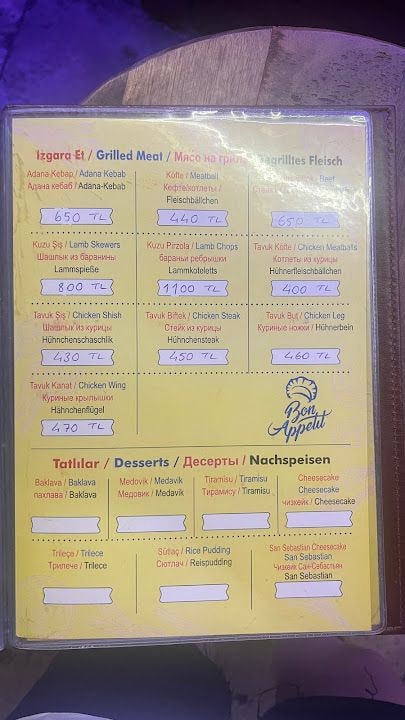 Izgara Et / Grilled Meat / Мясо на гриле Gegrilltes Fleisch
Adana Kebap / Adana Kebab
Адана кебаб / Adana-Kebab
650 TL
Köfte / Meatball
Кефте/котлеты /
Fleischbällchen
440 TL
Beef
650 TL
Kuzu Şiş / Lamb Skewers
Шашлык из баранины
Lammspieße
800 TL
Kuzu Pirzola / Lamb Chops
бараньи ребрышки
Lammkoteletts
1100 TL
Tavuk Köfte / Chicken Meatballs
Котлеты из курицы
Hühnerfleischbällchen
400 TL
Tavuk Şiş / Chicken Shish
Шашлык из курицы
Hühnchenschaschlik
430 TL
Tavuk Biftek / Chicken Steak
Стейк из курицы
Hühnchensteak
450 TL
Tavuk But / Chicken Leg
Куриные ножки / Hühnerbein
460 TL
Tavuk Kanat / Chicken Wing
Куриные крылышки
Hähnchenflügel
470 TL
Bon
Appetit
Tatlılar / Desserts / Десерты / Nachspeisen
Baklava / Baklava
пахлава / Baklava
Medovik / Medavik
Медовик / Medavik
Tiramisu / Tiramisu
Тирамису / Tiramisu
Cheesecake
Cheesecake
чизкейк / Cheesecake
Trileçe / Trilece
Трилече / Trilece
Sütlaç / Rice Pudding
Сютлач / Reispudding
San Sebastian Cheesecake
San Sebastian
Чизкейк Сан-Себастьян
San Sebastian